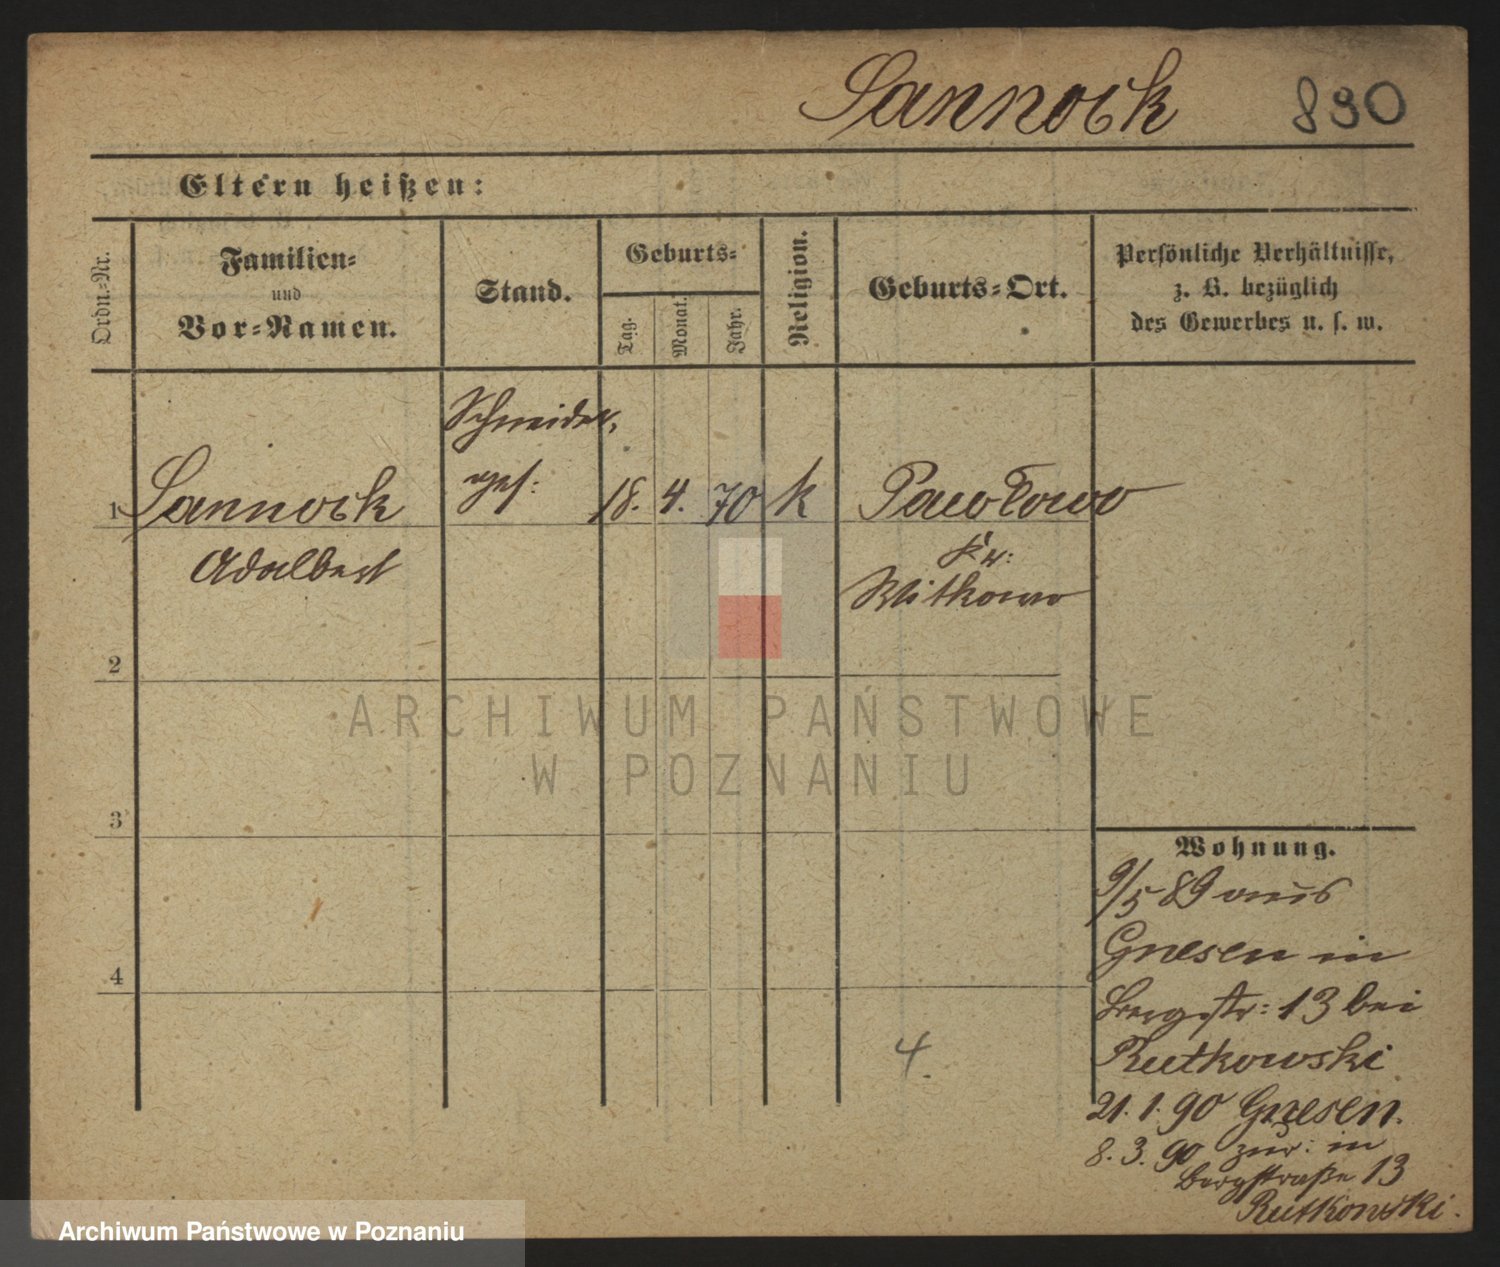 Sannock 890
Eltern heißen:
Ordn.-Nr.
Familien-
und
Vor-Namen.
Stand.
Geburts-
Tag.
Monat.
Jahr.
Religion.
Geburts-Ort.
Persönliche Verhältnisse,
z. B. bezüglich
des Gewerbes u. s. w.
Schneider,
1 Sannock ges: 18. 4. 70 k Pawłowo
Adalbert Kr:
Witkowo
2
ARCHIWUM PAŃSTWOWE
W POZNANIU
3
Wohnung.
9/5 89 aus
Gnesen in
4
Bergstr: 13 bei
Rutkowski
4.
21. 1. 90 Gnesen.
8. 3. 90 zur: in
Bergstraße 13
Rutkowski.
Archiwum Państwowe w Poznaniu